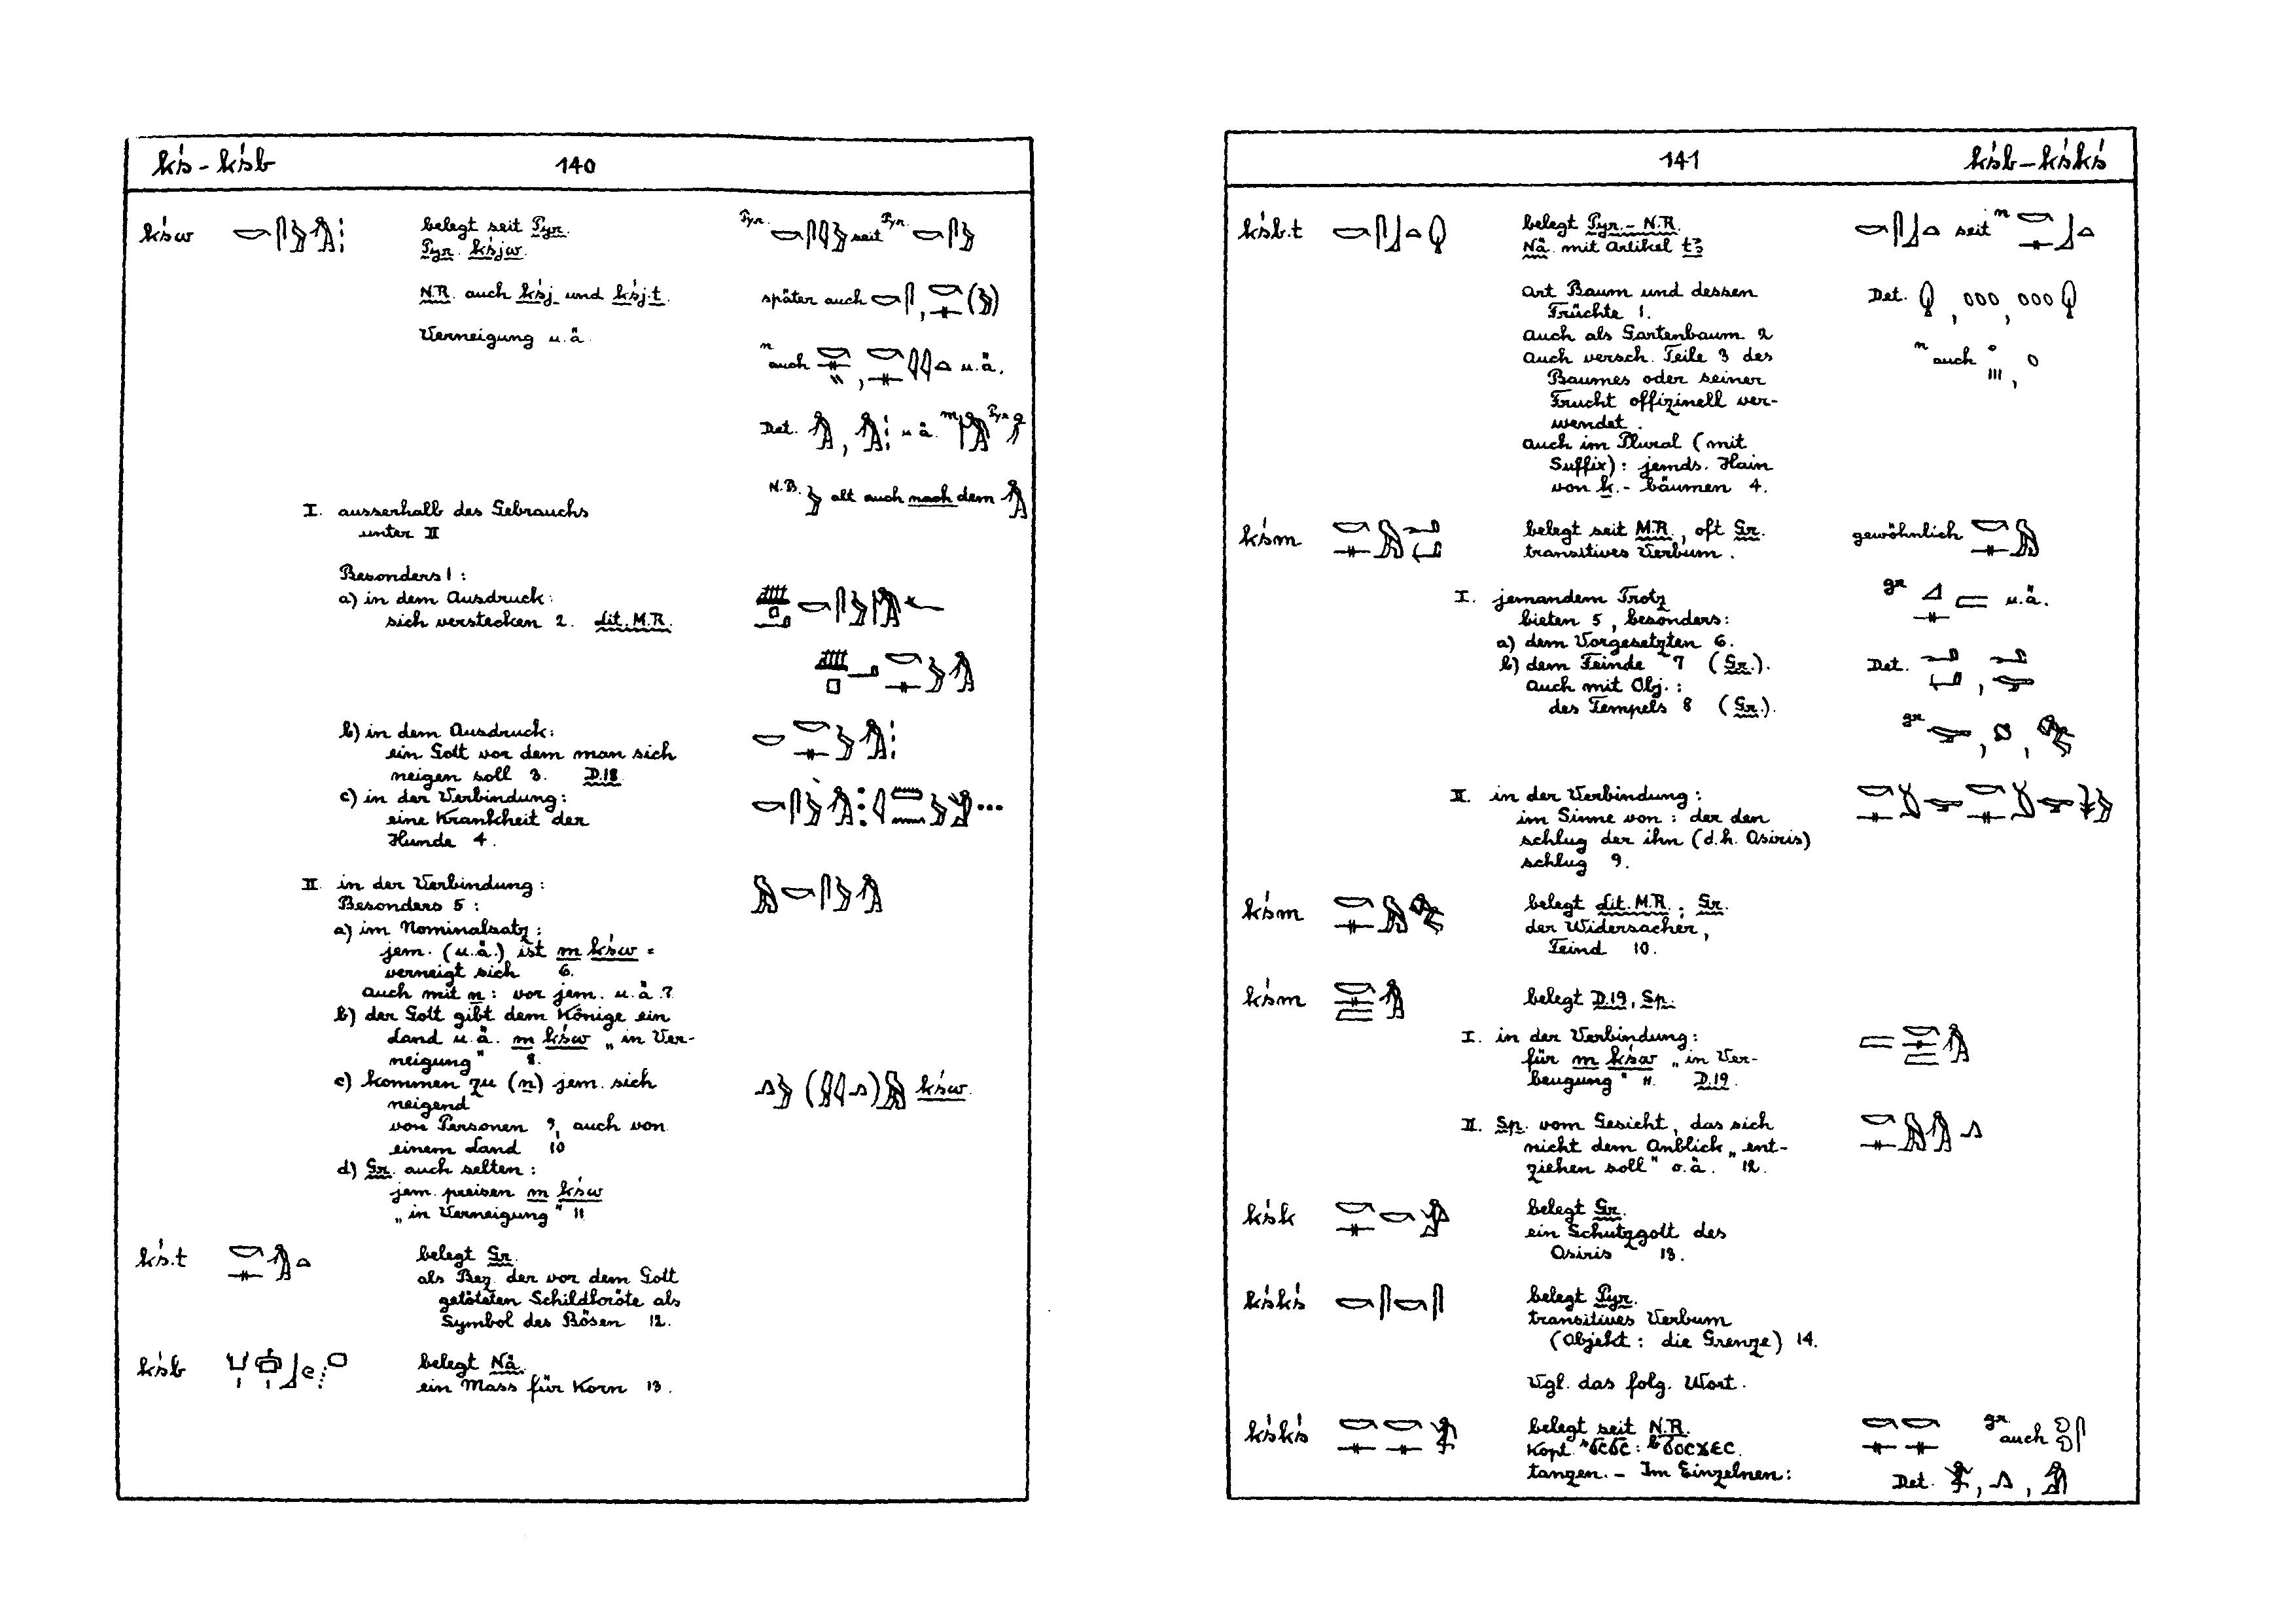 kś - kśb 140
kśw belegt seit Pyr.
Pyr. kśjw.
Pyr. seit Pyr.
N.R. auch kśj und kśj.t.
später auch
Verneigung u.ä.
n auch u.ä.
Det. , u.ä. m Pyr
N.B. alt auch nach dem
I. ausserhalb des Gebrauchs
unter II
Besonders 1:
a) in dem Ausdruck:
sich verstecken 2. Lit. M.R.
b) in dem Ausdruck:
ein Gott vor dem man sich
neigen soll 3. D.18
c) in der Verbindung:
eine Krankheit der
Hunde 4.
II. in der Verbindung:
Besonders 5:
a) im Nominalsatz:
jem. (u.ä.) ist m kśw =
verneigt sich 6.
auch mit n: vor jem. u.ä. 7.
b) der Gott gibt dem Könige ein
Land u.ä. m kśw „in Ver-
neigung" 8.
c) kommen zu (n) jem. sich
neigend
von Personen 9, auch von
einem Land 10
kśw.
d) Gr. auch selten:
jem. preisen m kśw
„in Verneigung" 11
kś.t belegt Gr.
als Bez. der vor dem Gott
getöteten Schildkröte als
Symbol des Bösen 12.
kśb belegt Nä.
ein Mass für Korn 13.
141 kśb - kśkś
kśb.t belegt Pyr. - N.R.
Nä. mit Artikel tꜣ
seit n
Art Baum und dessen
Früchte 1.
Det. , ,
Auch als Gartenbaum 2
Auch versch. Teile 3 des
Baumes oder seiner
Frucht offizinell ver-
wendet.
n auch ,
auch im Plural (mit
Suffix): jemds. Hain
von k.- bäumen 4.
kśm belegt seit M.R., oft Gr.
transitives Verbum.
gewöhnlich
gr u.ä.
I. jemandem Trotz
bieten 5, besonders:
a) dem Vorgesetzten 6.
b) dem Feinde 7 (Gr.).
auch mit Obj.:
des Tempels 8 (Gr.).
Det. ,
gr , ,
II. in der Verbindung:
im Sinne von: der den
schlug der ihn (d.h. Osiris)
schlug 9.
kśm belegt Lit. M.R.; Gr.
der Widersacher,
Feind 10.
kśm belegt D.19, Sp.
I. in der Verbindung:
für m kśw „in Ver-
beugung" 11. D.19.
II. Sp. vom Gesicht, das sich
nicht dem Anblick „ent-
ziehen soll" o.ä. 12.
kśk belegt Gr.
ein Schutzgott des
Osiris 13.
kśkś belegt Pyr.
transitives Verbum
(Objekt: die Grenze) 14.
Vgl. das folg. Wort.
kśkś belegt seit N.R.
Kopt. ˢϭⲥϭⲥ : ᵇϭⲟⲥϫⲉⲥ.
tanzen. - Im Einzelnen:
gr auch
Det. , ,